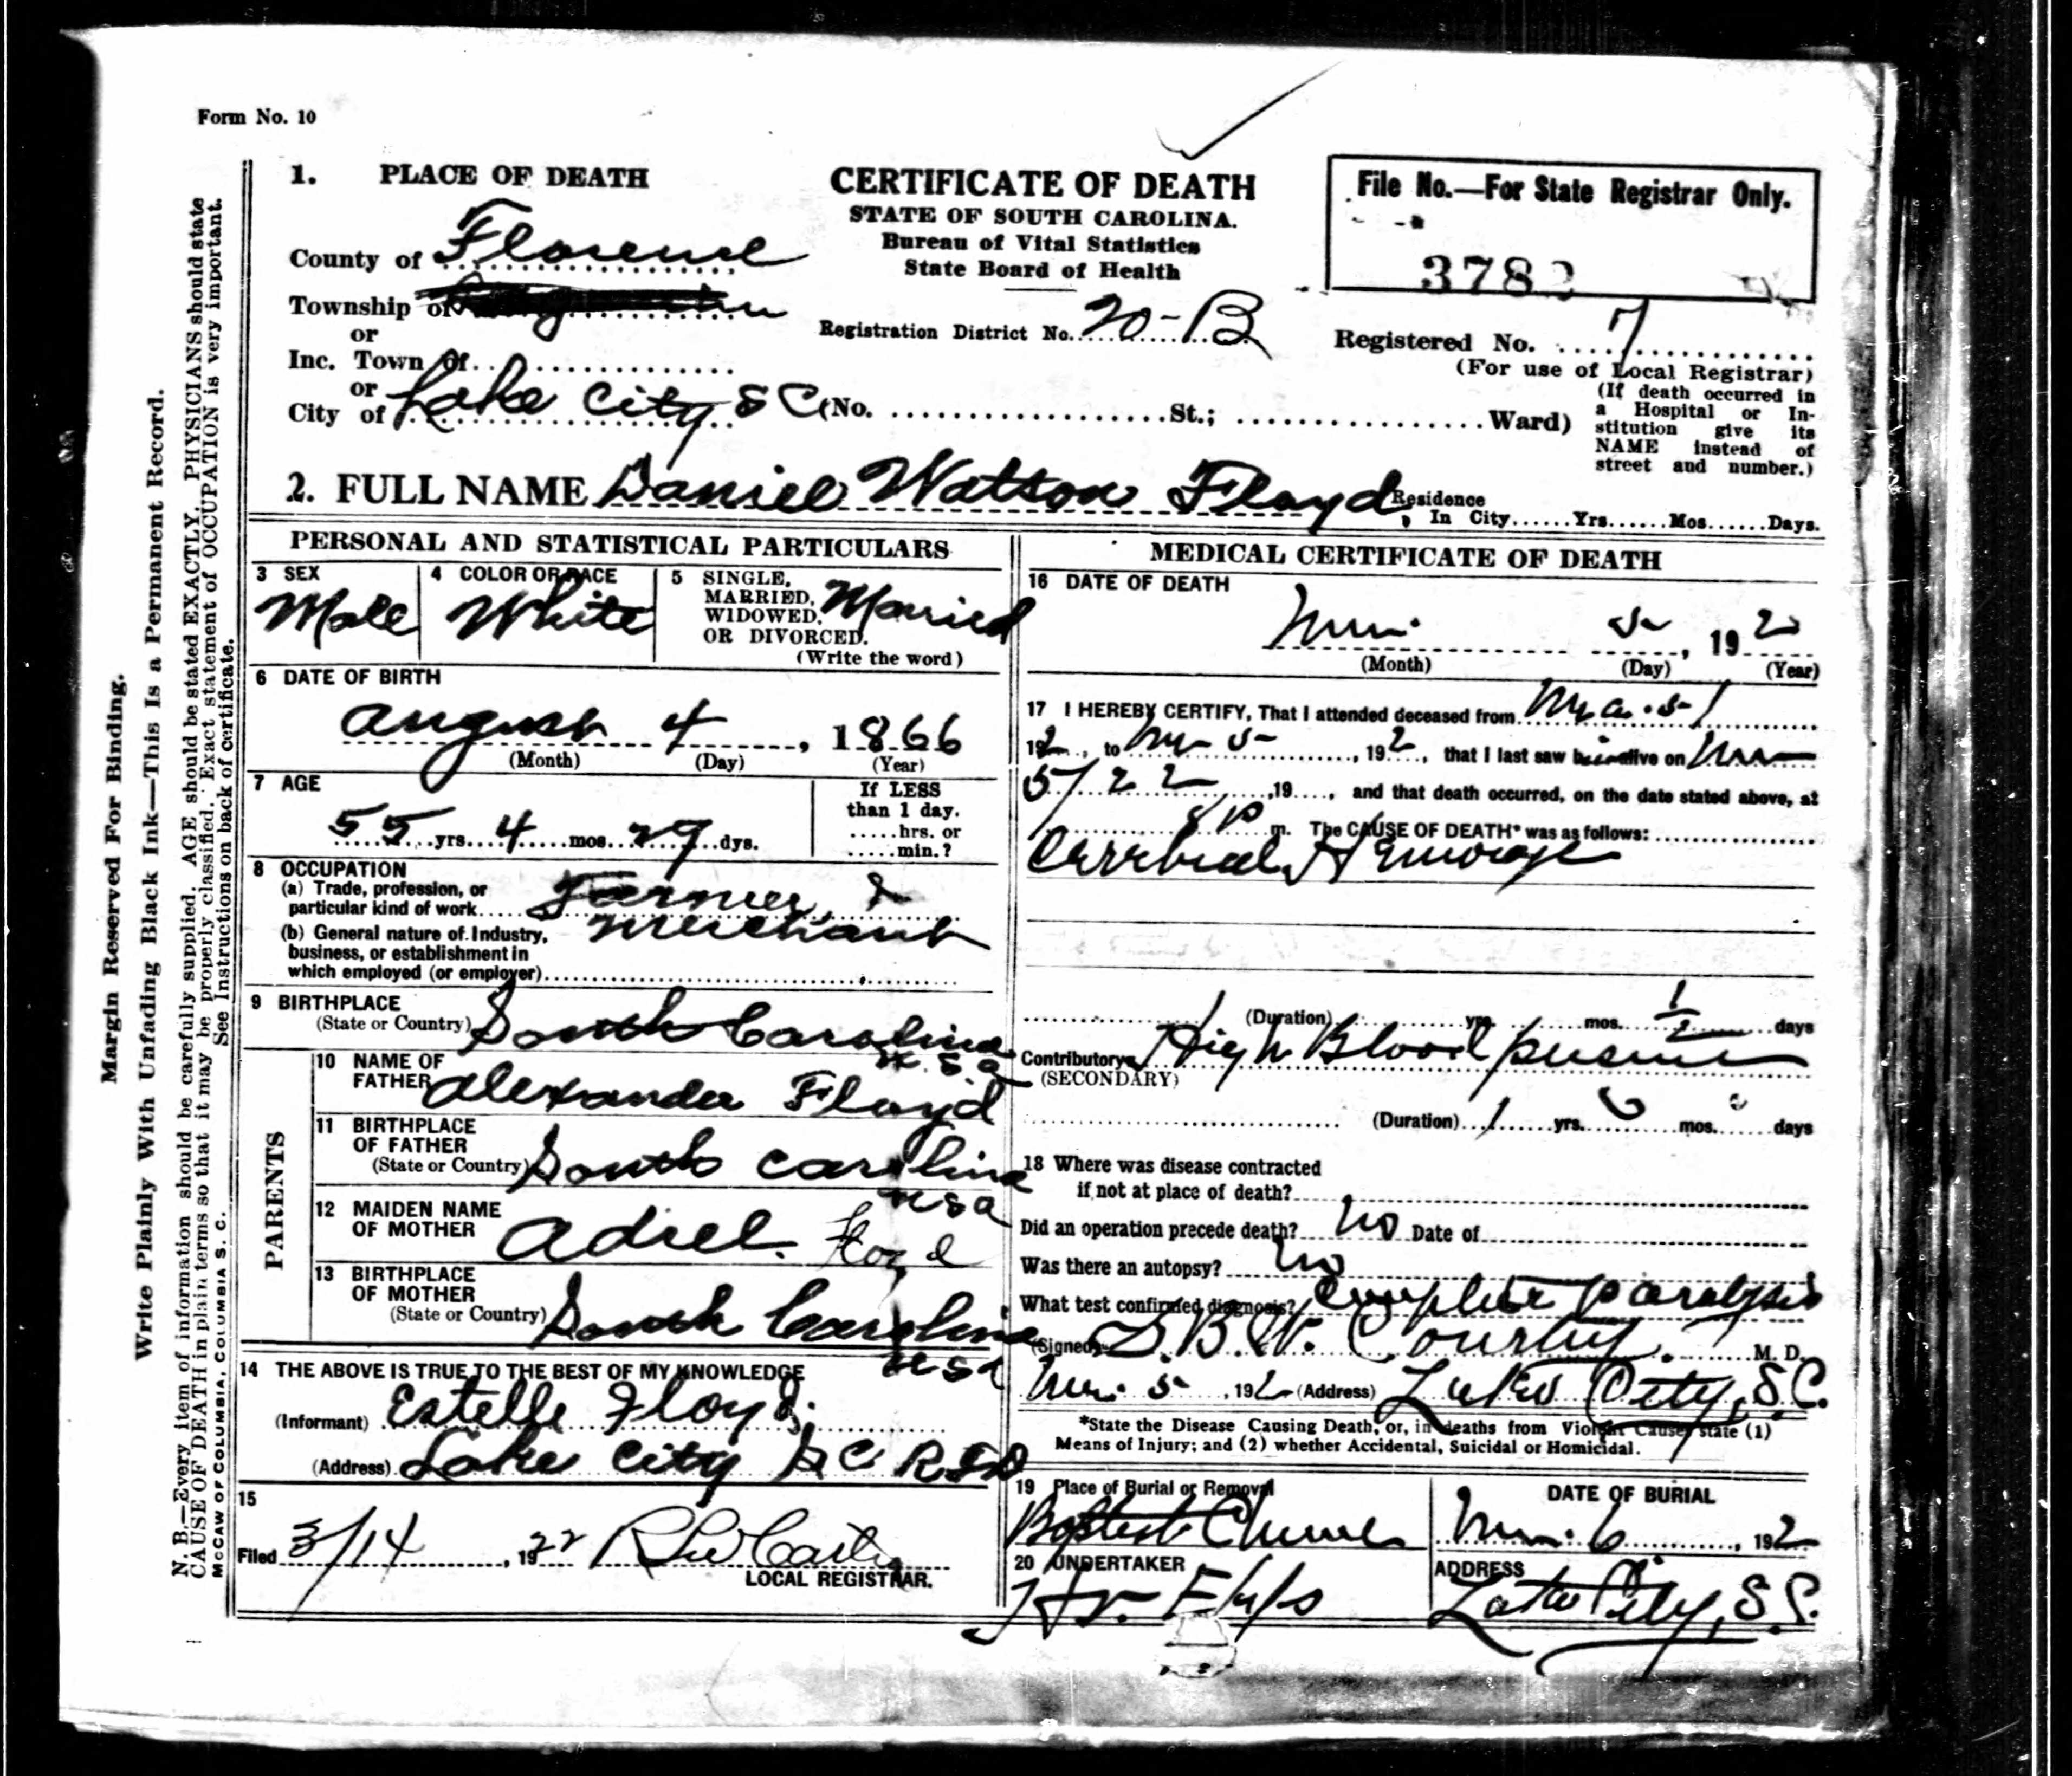 Form No. 10
1. PLACE OF DEATH
County of Florence
Township of
or
Inc. Town of
or
City of Lake City S C (No. St.; Ward)
CERTIFICATE OF DEATH
STATE OF SOUTH CAROLINA.
Bureau of Vital Statistics
State Board of Health
Registration District No. 20-B
File No.—For State Registrar Only.
3782
Registered No. 7
(For use of Local Registrar)
(If death occurred in
a Hospital or In-
stitution give its
NAME instead of
street and number.)
2. FULL NAME Daniel Watson Floyd
Residence
In City......Yrs......Mos......Days.
PERSONAL AND STATISTICAL PARTICULARS
3 SEX
Male
4 COLOR OR RACE
White
5 SINGLE,
MARRIED,
WIDOWED,
OR DIVORCED.
Married
(Write the word)
6 DATE OF BIRTH
August 4, 1866
(Month) (Day) (Year)
7 AGE
55 yrs. 4 mos. 29 dys.
If LESS
than 1 day.
.....hrs. or
.....min.?
8 OCCUPATION
(a) Trade, profession, or
particular kind of work.... Farmer &
Merchant
(b) General nature of Industry,
business, or establishment in
which employed (or employer)
9 BIRTHPLACE
(State or Country) South Carolina
U.S.a
PARENTS
10 NAME OF
FATHER Alexander Floyd
11 BIRTHPLACE
OF FATHER
(State or Country) South Carolina
usa
12 MAIDEN NAME
OF MOTHER Adrel Floyd
13 BIRTHPLACE
OF MOTHER
(State or Country) South Carolina
usa
14 THE ABOVE IS TRUE TO THE BEST OF MY KNOWLEDGE
(Informant) Estelle Floyd
(Address) Lake City S C RFD
15
Filed 3/14, 1922
LOCAL REGISTRAR.
MEDICAL CERTIFICATE OF DEATH
16 DATE OF DEATH
5, 19 2
(Month) (Day) (Year)
17 I HEREBY CERTIFY, That I attended deceased from
192, to 5, 192, that I last saw him alive on
5/22, 19...., and that death occurred, on the date stated above, at
8 P m. The CAUSE OF DEATH* was as follows:
Cerebral Hemorage
(Duration) yrs. mos. 1/2 days
Contributory High Blood pressure
(SECONDARY)
(Duration) 1 yrs. 0 mos. 0 days
18 Where was disease contracted
if not at place of death?
Did an operation precede death? no Date of
Was there an autopsy? no
What test confirmed diagnosis? Complete paralysis
(Signed) S. B. W. Courtney. M. D.
5, 192 (Address) Lake City, S.C.
*State the Disease Causing Death, or, in deaths from Violent Causes state (1)
Means of Injury; and (2) whether Accidental, Suicidal or Homicidal.
19 Place of Burial or Removal
Baptist Church
DATE OF BURIAL
6, 192
20 UNDERTAKER
Epps
ADDRESS
Lake City, S.C.
Margin Reserved For Binding.
Write Plainly With Unfading Black Ink—This Is a Permanent Record.
N. B.—Every item of information should be carefully supplied. AGE should be stated EXACTLY. PHYSICIANS should state
CAUSE OF DEATH in plain terms so that it may be properly classified. Exact statement of OCCUPATION is very important.
See Instructions on back of certificate.
McCAW OF COLUMBIA, COLUMBIA S. C.